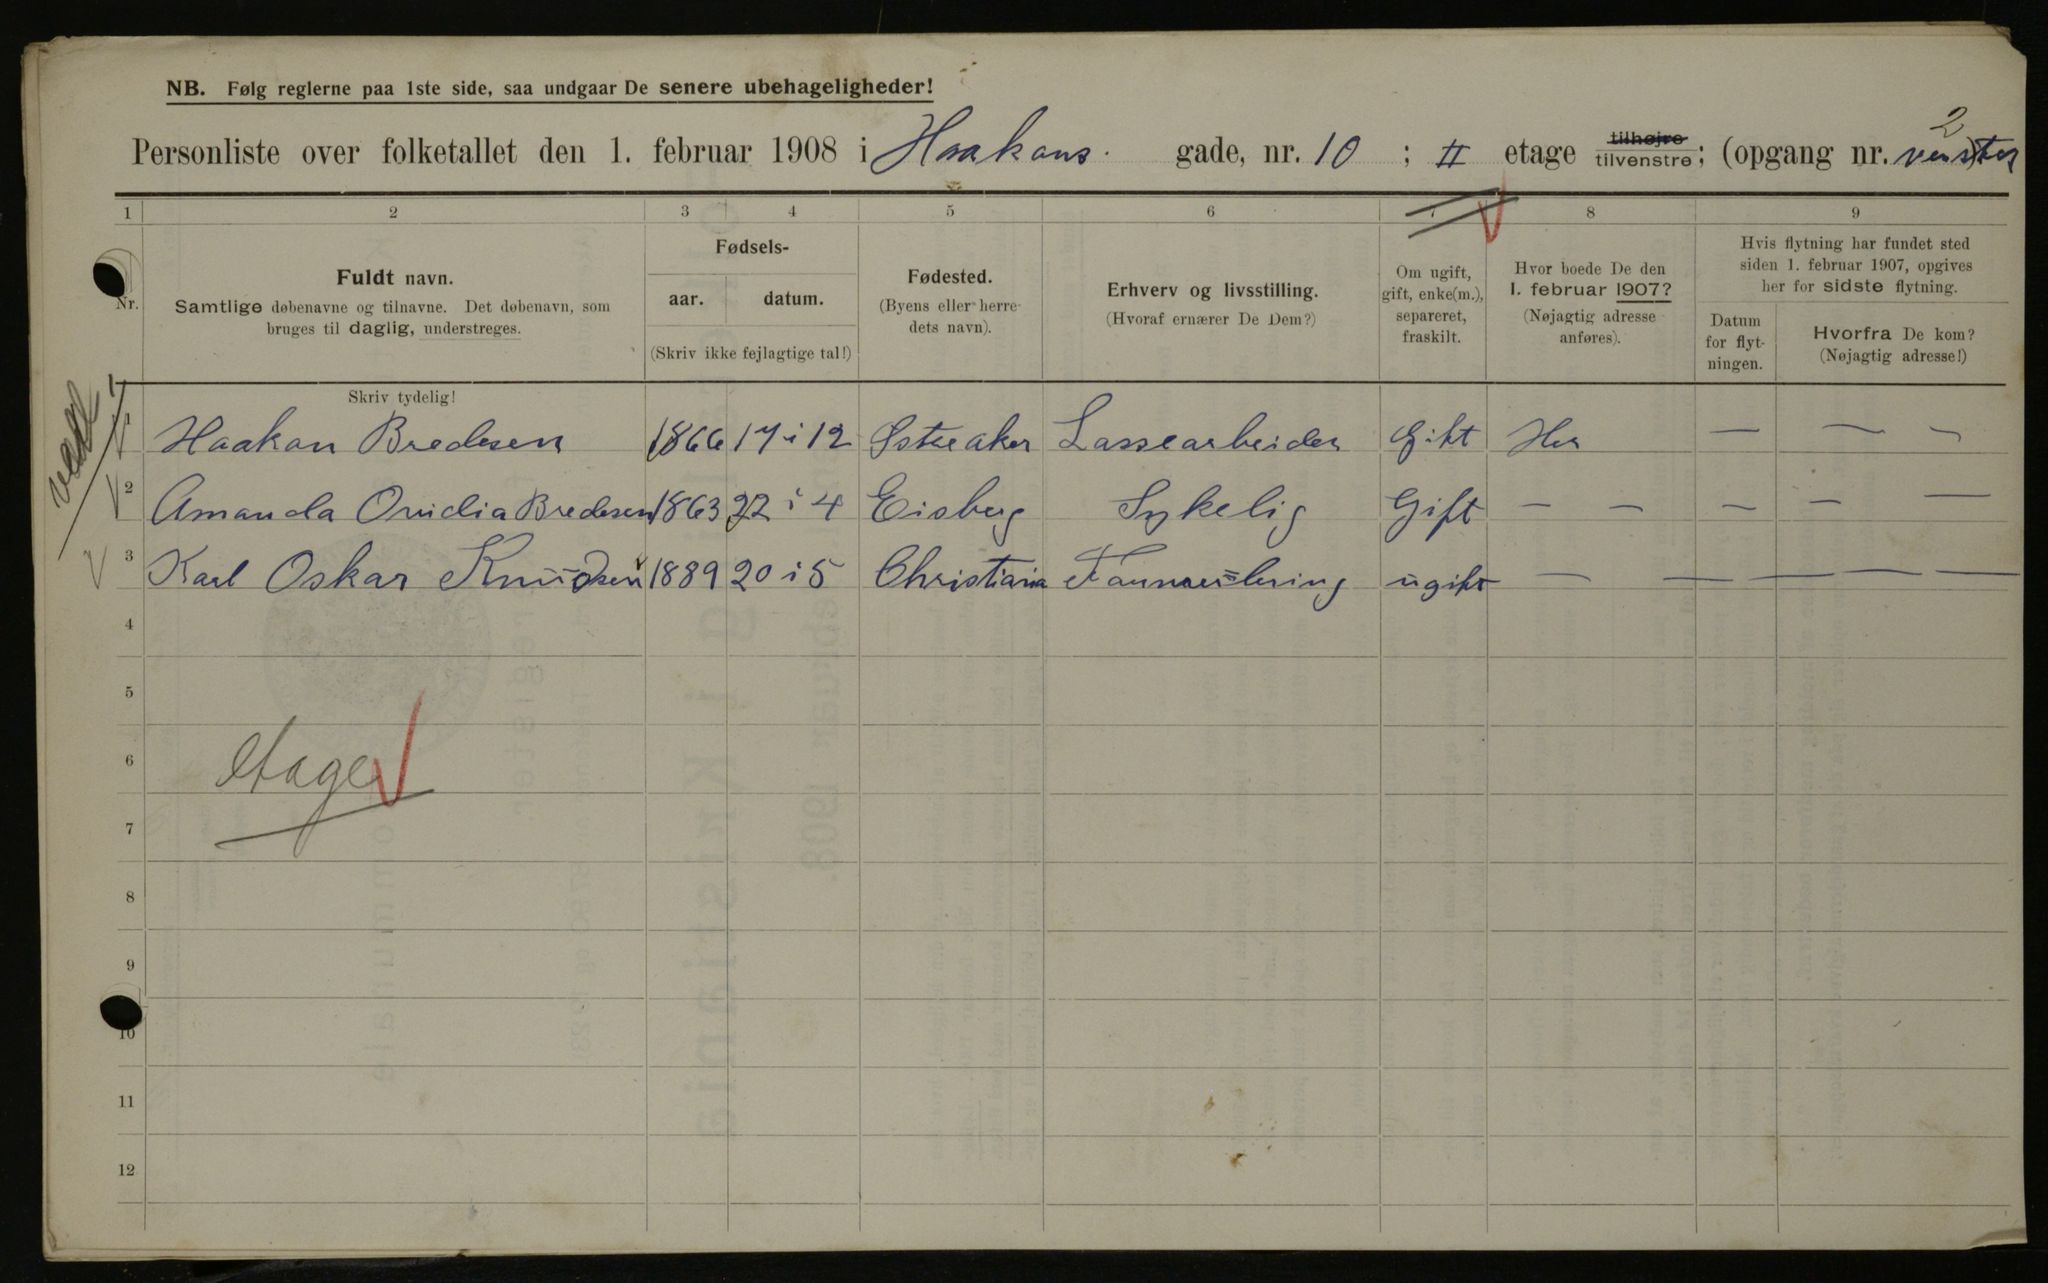 NB. Følg reglerne paa 1ste side, saa undgaar De senere ubehageligheder!
Personliste over folketallet den 1. februar 1908 i Haakons gade, nr. 10 ; II etage tilhøjre tilvenstre; (opgang nr. 2 venster
1 2 3 4 5 6 7 8 9
Nr.
Fuldt navn.
Samtlige døbenavne og tilnavne. Det døbenavn, som
bruges til daglig, understreges.
Fødsels-
aar. datum.
(Skriv ikke fejlagtige tal!)
Fødested.
(Byens eller herre-
dets navn).
Erhverv og livsstilling.
(Hvoraf ernærer De Dem?)
Om ugift,
gift, enke(m.),
separeret,
fraskilt.
Hvor boede De den
1. februar 1907?
(Nøjagtig adresse
anføres).
Hvis flytning har fundet sted
siden 1. februar 1907, opgives
her for sidste flytning.
Datum
for flyt-
ningen.
Hvorfra De kom?
(Nøjagtig adresse!)
Skriv tydelig!
1 Haakon Bredesen 1866 17 i 12 Østreaker Lassearbeider Gift Her — — —
2 Amanda Ovidia Bredesen 1863 22 i 4 Eisberg Sykelig Gift — — — — —
3 Karl Oskar Knudsen 1889 20 i 5 Christiania ugift — — — — —
4
5
etage
6
7
8
9
10
11
12